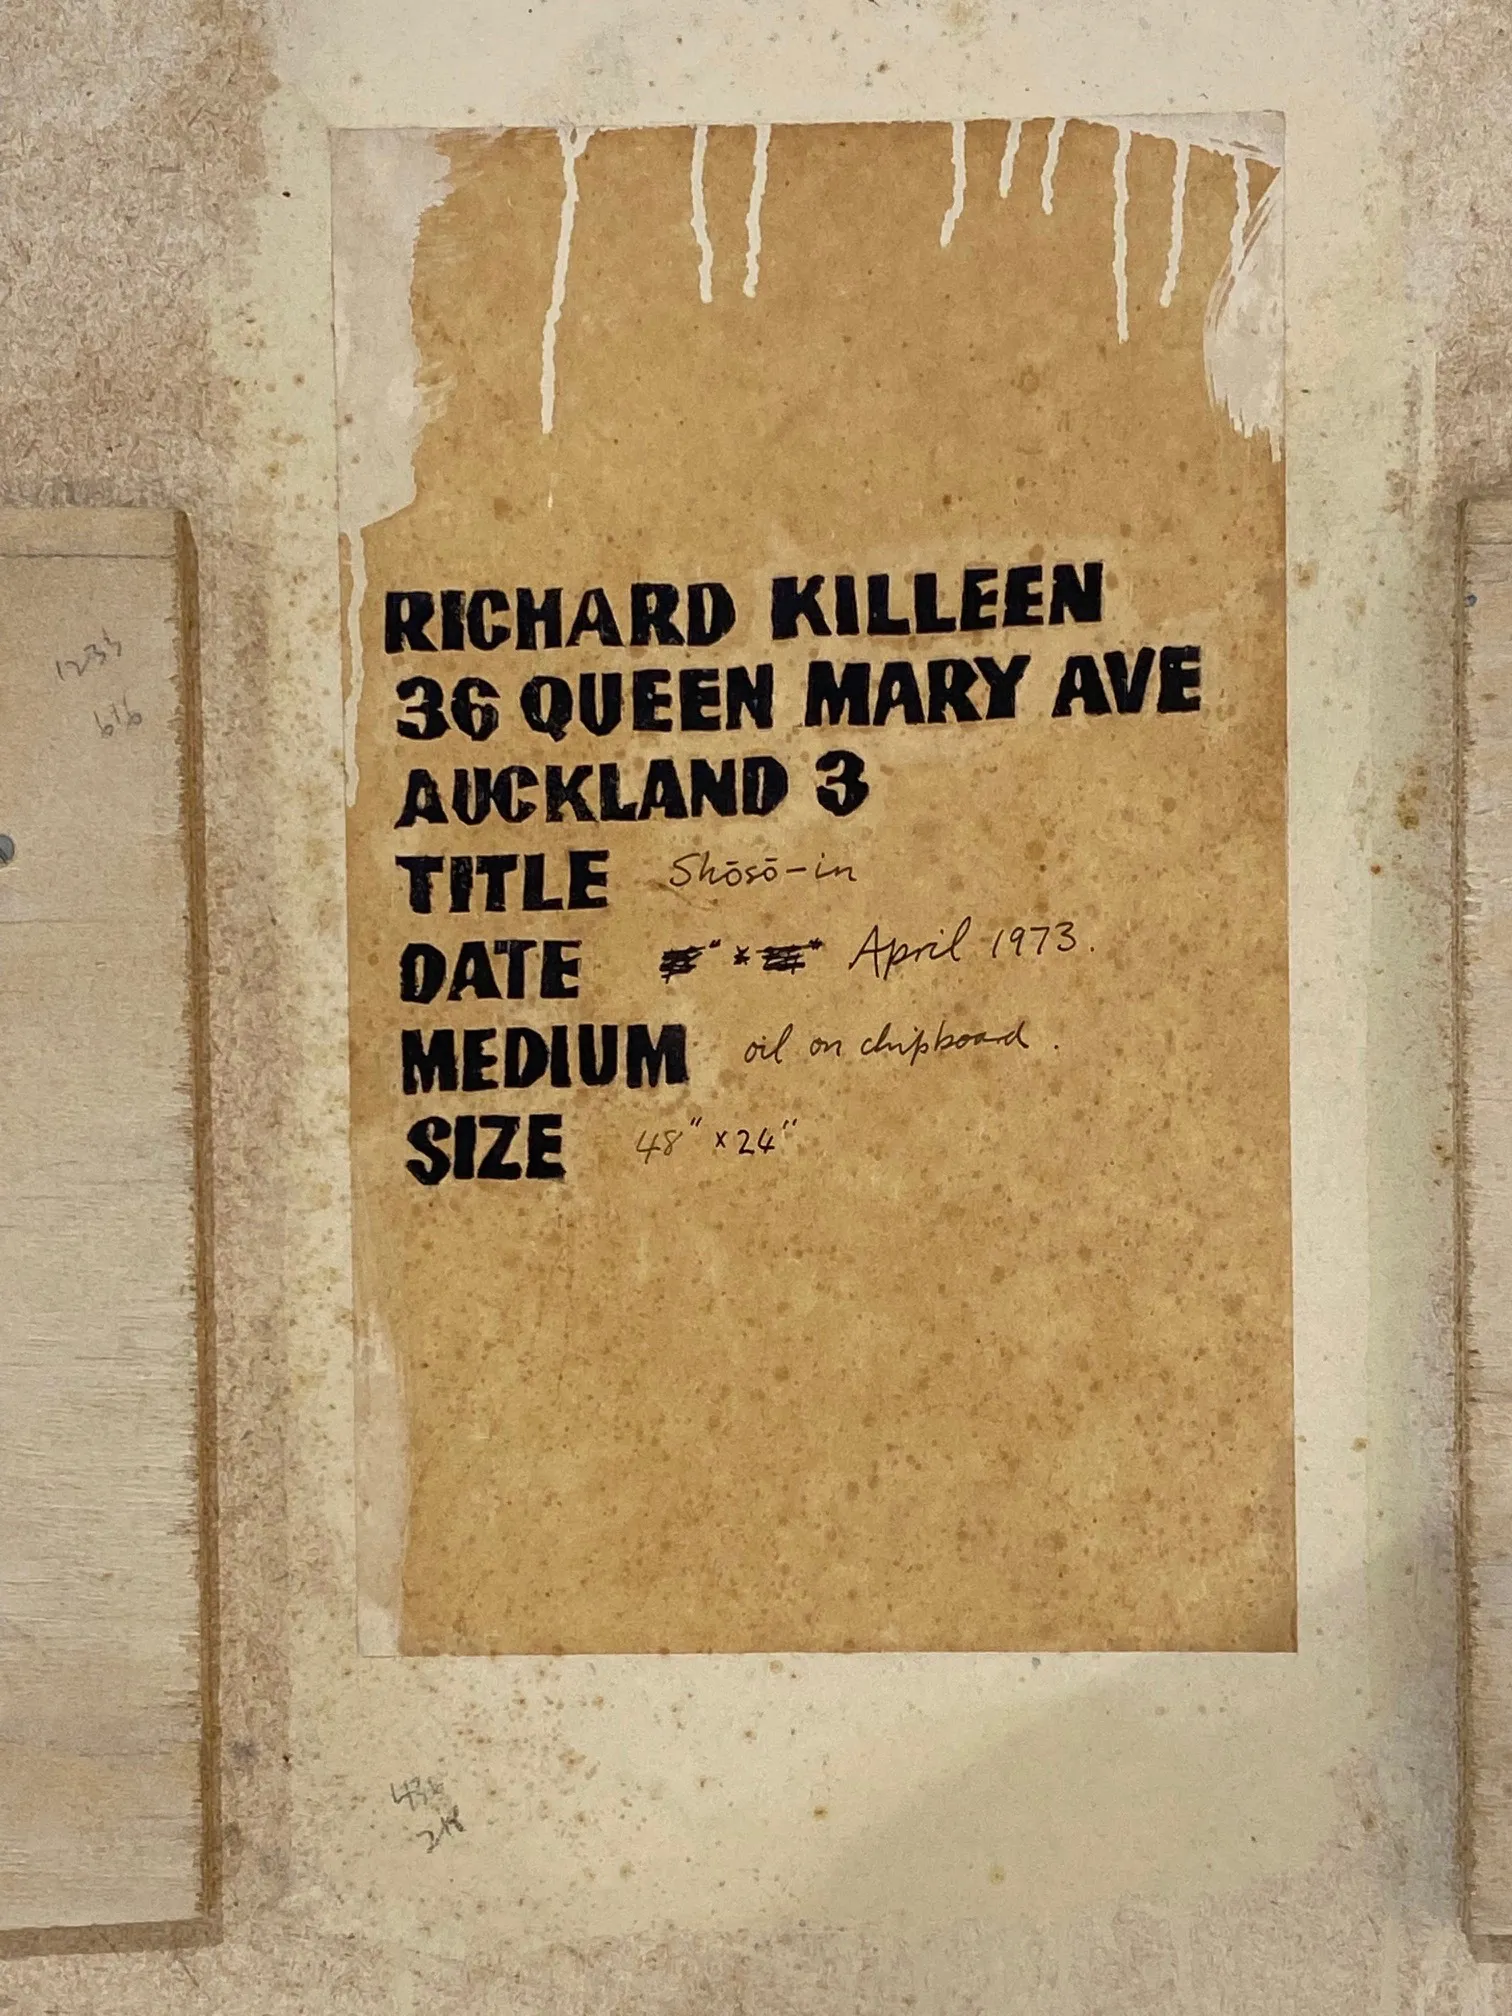 RICHARD KILLEEN
36 QUEEN MARY AVE
AUCKLAND 3
TITLE Shōsō-in
DATE " x " April 1973.
MEDIUM oil on chipboard.
SIZE 48" x 24"
1235
616
436
218